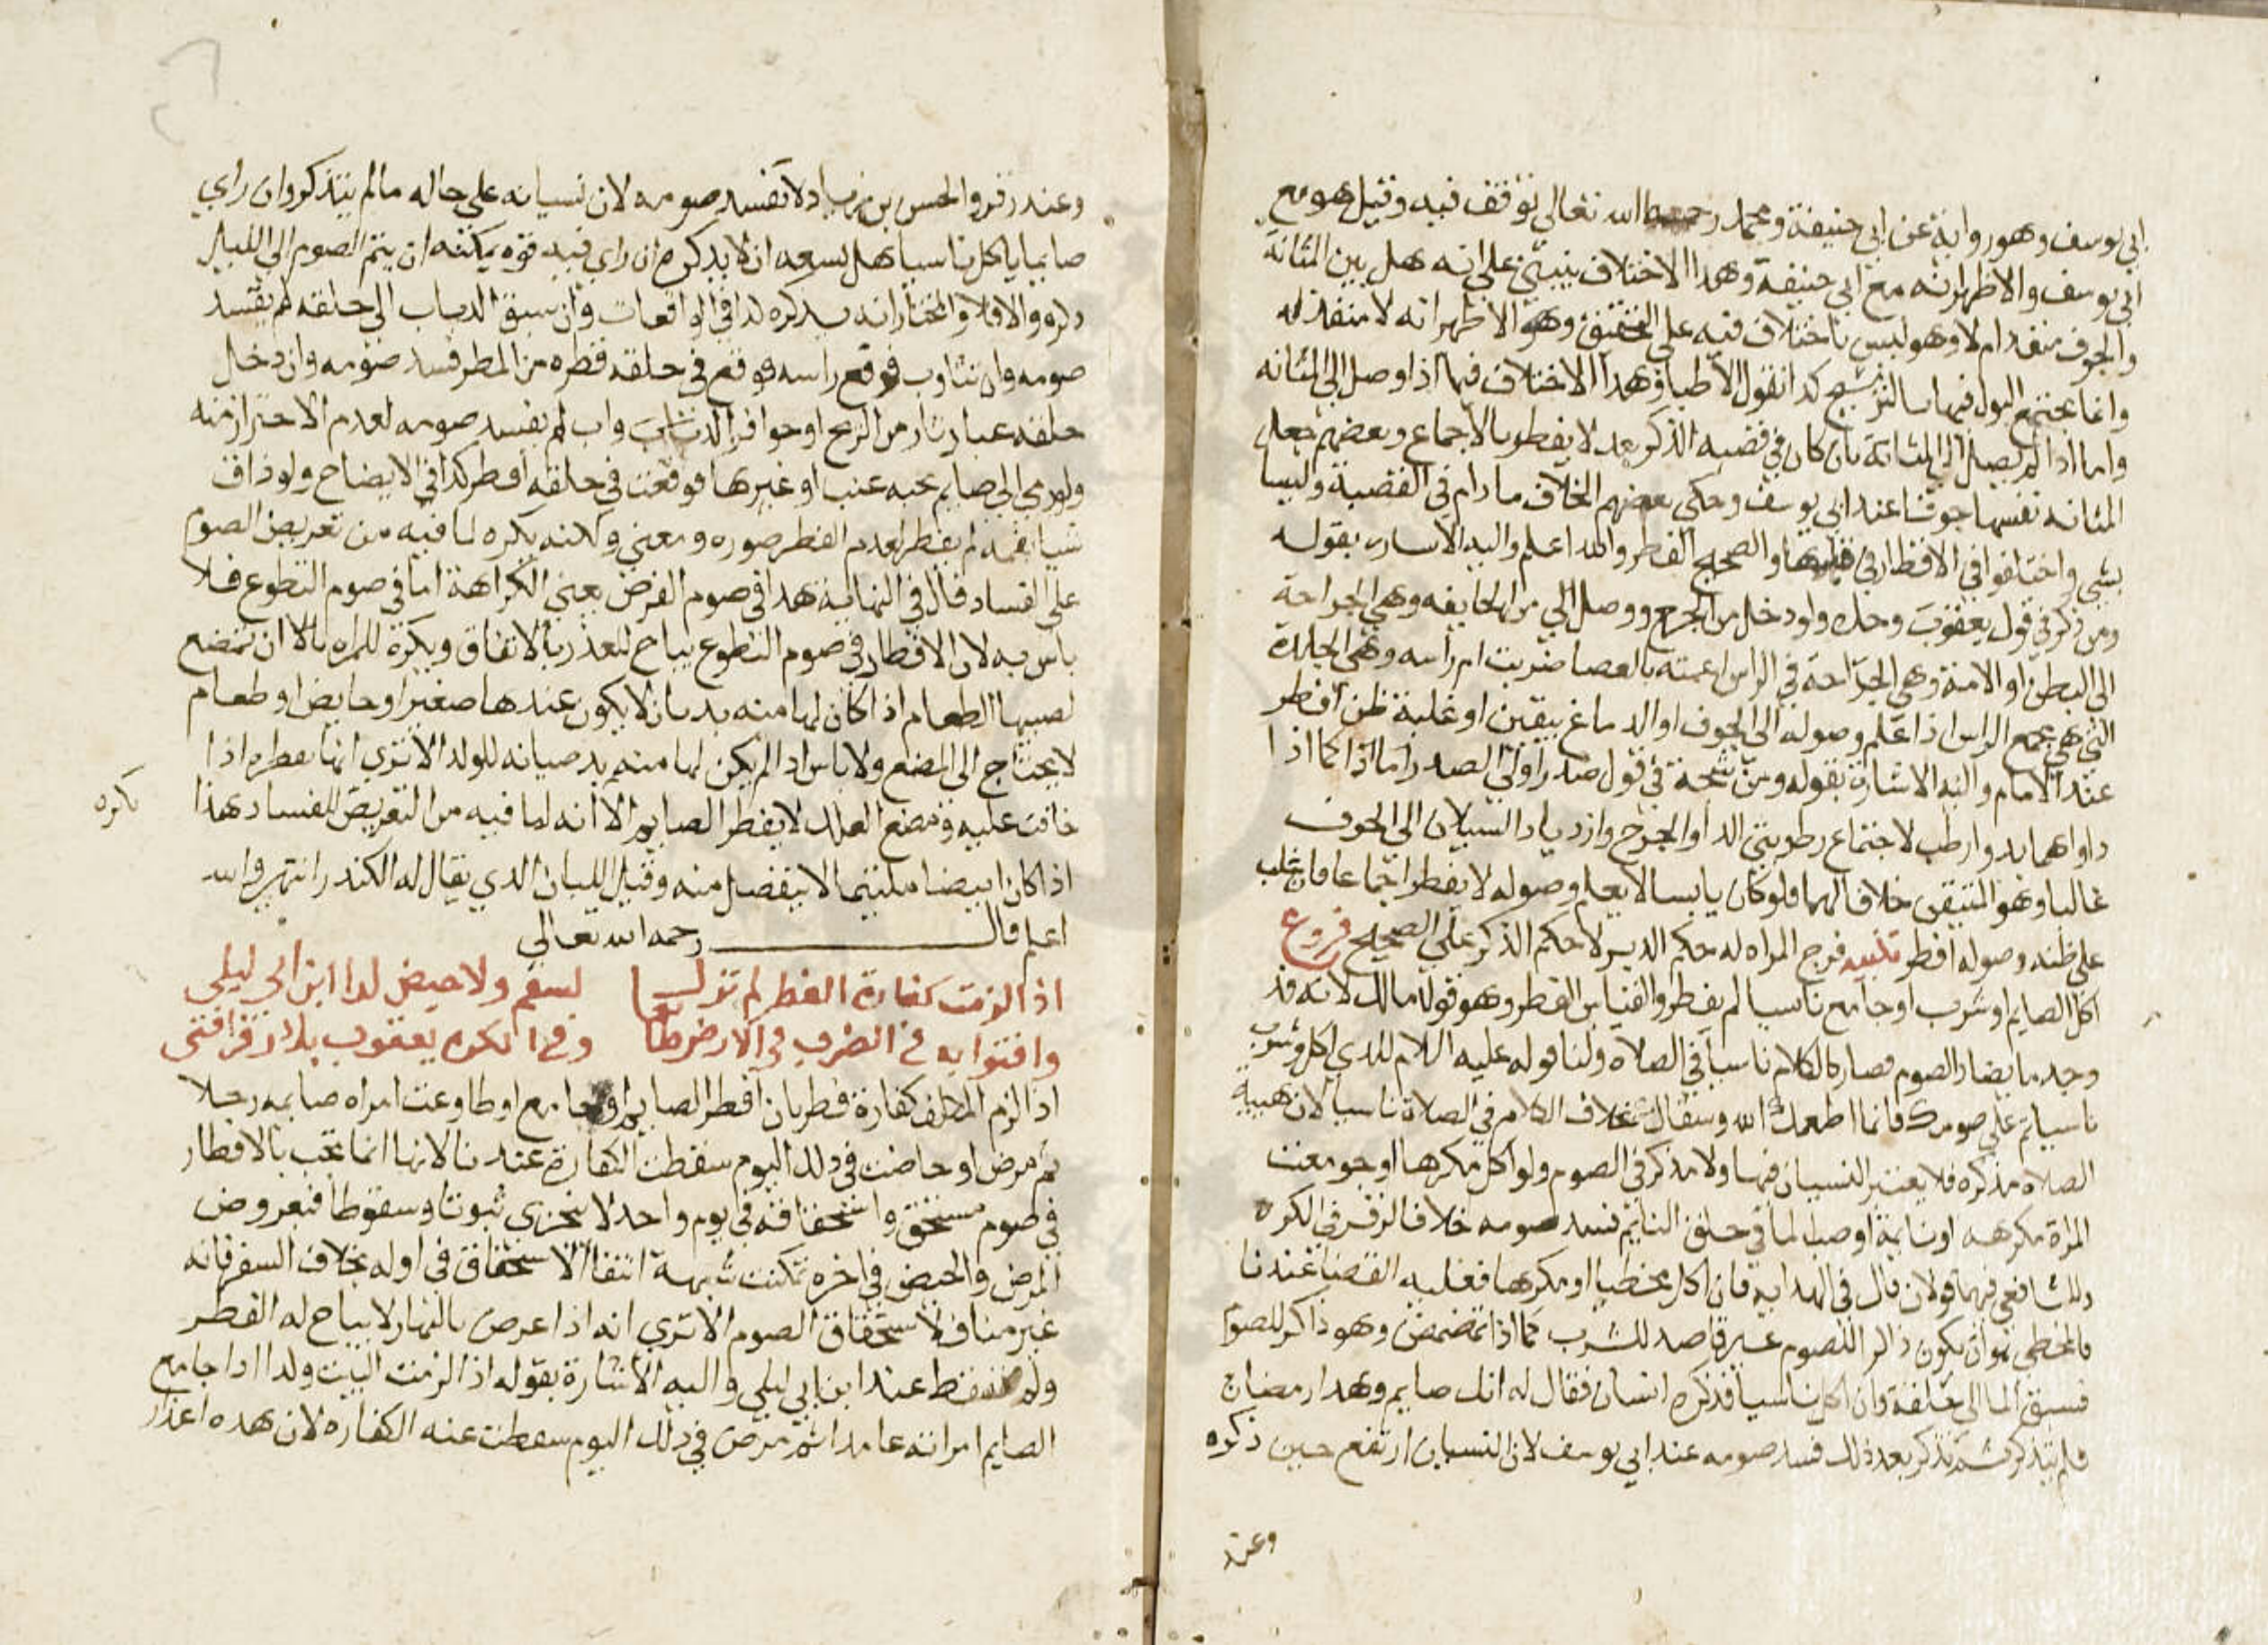 ابي يوسف وهو رواية عن ابي حنيفة ومحمد رحمه الله تعالى توقف فيه وقيل هو مع
ابي يوسف والاظهر انه مع ابي حنيفة وهذا الاختلاف ينبني على انه هل بين المثانة
والجوف منفذ ام لا وهو ليس باختلاف فيه على التحقيق وهو الاظهر انه لا منفذ له
وانما يجتمع البول فيها بالترشيح كذا تقول الاطباء وهذا الاختلاف فيما اذا وصل الى المثانه
واما اذا لم يصل الى المثانة بان كان في قصبة الذكر بعد لا يفطر بالاجماع وبعضهم جعل
المثانه نفسها جوفا عند ابي يوسف وحكى بعضهم الخلاف ما دام في القصبة وليسا
بشي واختلفوا في الافطار في قبلها والصحيح الفطر والله اعلم واليه الاساره بقوله
ومن ذكر في قول يعقوب وحده ولو دخل من الجرح ووصل الى من الجايفه وهي الجراحة
الى البطن او الامنة وهي الجراحة في الراس اعمته بالعصا ضربت ام راسه وهي الجلدة
التي هي مجمع الراس اذا علم وصوله الى الجوف او الدماغ بيقين او غلبة ظن افطر
عند الامام واليه الاشارة بقوله ومن شجة في قول صدر اولي الصدر اما اذا كما اذا
داواهما بدوا رطب لاجتماع رطوبتي الدا والجرح وازدياد السيلان الى الجوف
غالبا وهو المتيقن خلافا لهما فلو كان يابسا لا يعلم وصوله لا يفطر اجماعا فان غلب
على ظنه وصوله افطر تنبيه فرج المراه له حكم الدبر لا حكم الذكر على الصحيح فروع
اكل الصايم او شرب او جامع ناسيا لم يفطر والقياس الفطر وهو قول مالك لانه قد
وجد ما يضاد الصوم فصار كالكلام ناسيا في الصلاه ولنا قوله عليه السلام للذي اكل وشرب
ناسيا تم على صومك فانما اطعمك الله وسقاك بخلاف الكلام في الصلاة ناسيا لان هيية
الصلاه مذكره فلا يعتبر النسيان فيها ولا مذكر في الصوم ولو اكل مكرها او جومعت
المراة مكرهه او نايمة او صب لما في حلق النايم فسد صومه خلافا لزفر في المكره
وللشافعي فيهما قولان قال في الهدايه فان اكل مخطيا او مكرها فعليه القضا عندنا
فالمخطي هو ان يكون ذاكر اللصوم غير قاصد للشرب كما اذا تمضمض وهو ذاكر للصوم
فسبق الما الى حلقه وان اكل ناسيا فذكره انسان فقال له انك صايم وهذا رمضان
فلم يتذكر ثم تذكر بعد ذلك فسد صومه عند ابي يوسف لان النسيان ارتفع حين ذكره
وعند
وعند زفر والحسن بن زياد لا تفسد صومه لان نسيانه على حاله ما لم يتذكر وان راي
صايما ياكل ناسيا هل يسعه ان لا يذكره ان راي فيه قوه يمكنه ان يتم الصوم الى الليل
ذكره والا فلا والمختار انه يذكره كذا في الواقعات وان سبق الذباب الى حلقه لم يفسد
صومه وان تثاوب فرفع راسه فوقع في حلقه قطره من المطر فسد صومه وان دخل
حلقه غبار ثار من الريح او حوافر الدواب لم يفسد صومه لعدم الاحتراز منه
ولو رمي الى صايم بحبه عنب او غيرها فوقعت في حلقه افطر كذا في الايضاح ولو ذاق
شيا بفمه لم يفطر لعدم الفطر صوره ومعني ولكنه يكره لما فيه من تعريض الصوم
على الفساد قال في النهاية هذا في صوم الفرض يعني الكراهة اما في صوم التطوع فلا
باس به لان الافطار في صوم التطوع يباح لعذر بالاتفاق ويكره للمراه بالا ان تمضغ
لصبيها الطعام اذا كان لها منه بد بان لا يكون عندها صغير او حايض او طعام
لا يحتاج الى المضغ ولا باس اذا لم يكن لها منه بد صيانه للولد الا تري انها تفطر اذا
خافت عليه ومضغ العلك لا يفطر الصايم الا انه لما فيه من التعريض للفساد هذا
يكره
اذا كان ابيضا ملتيما لا ينفصل منه وقيل اللبان الذي يقال له الكندر انتهى والله
اعلم قال رحمه الله تعالى
اذا لزمت كفارة الفطر لم تزل بسقم ولا حيض لدا ابن ابي ليلى
وافتوا به في الضرب في الارض وفي المكره يعقوب بل زفر افتى
اذا لزم المكلف كفارة فطر بان افطر الصايم او جامع او طاوعت امراه صايمه رجلا
ثم مرض او حاضت في ذلك اليوم سقطت الكفارة عندنا لانها انما تجب بالافطار
في صوم مستحق واستحقاقه في يوم واحد لا يتجزي ثبوتا وسقوطا فبعروض
المرض والحيض في اخره تمكنت شبهة انتفا الاستحقاق في اوله بخلاف السفر فانه
غير مناف لاستحقاق الصوم الا تري انه اذا عرض بالنهار لا يباح له الفطر
ولم تسقط عند ابن ابي ليلى واليه الاشارة بقوله اذا لزمت البيت ولذا اذا جامع
الصايم امراته عامدا ثم مرض في ذلك اليوم سقطت عنه الكفاره لان هذه اعذار